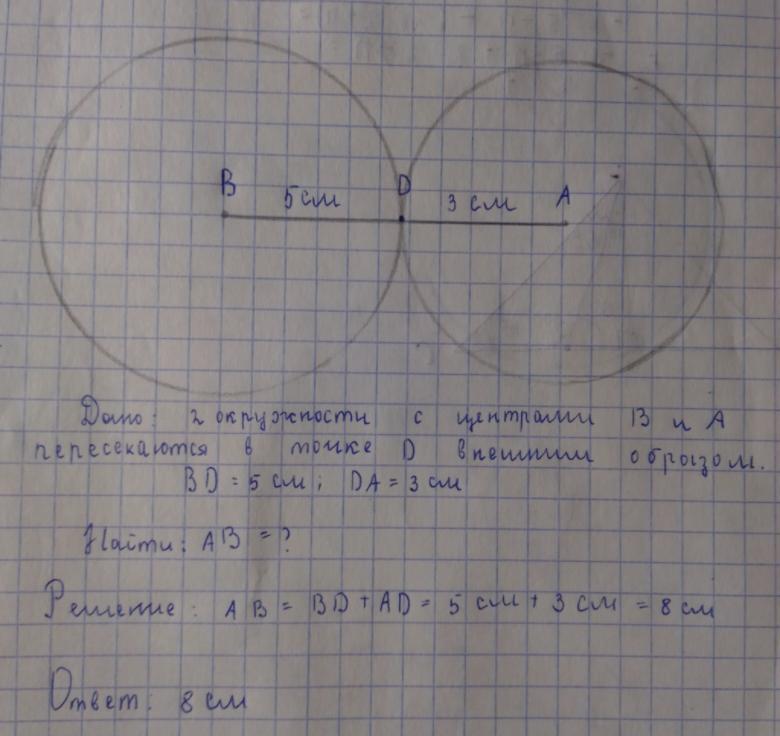 B 5 см D 3 см A
Дано: 2 окружности с центрами B и A
пересекаются в точке D внешним образом.
BD = 5 см; DA = 3 см
Найти: AB = ?
Решение: AB = BD + AD = 5 см + 3 см = 8 см
Ответ: 8 см